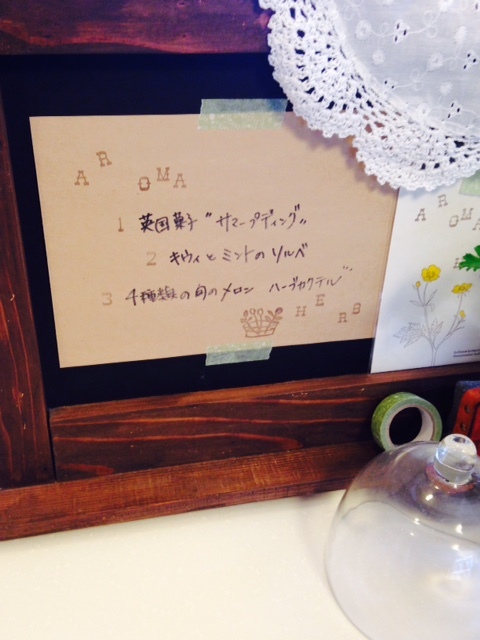 AROMA
1 英国菓子"サマープディング"
2 キウィとミントのソルベ
3 4種類の旬のメロン ハーブカクテル
HERB
AROMA